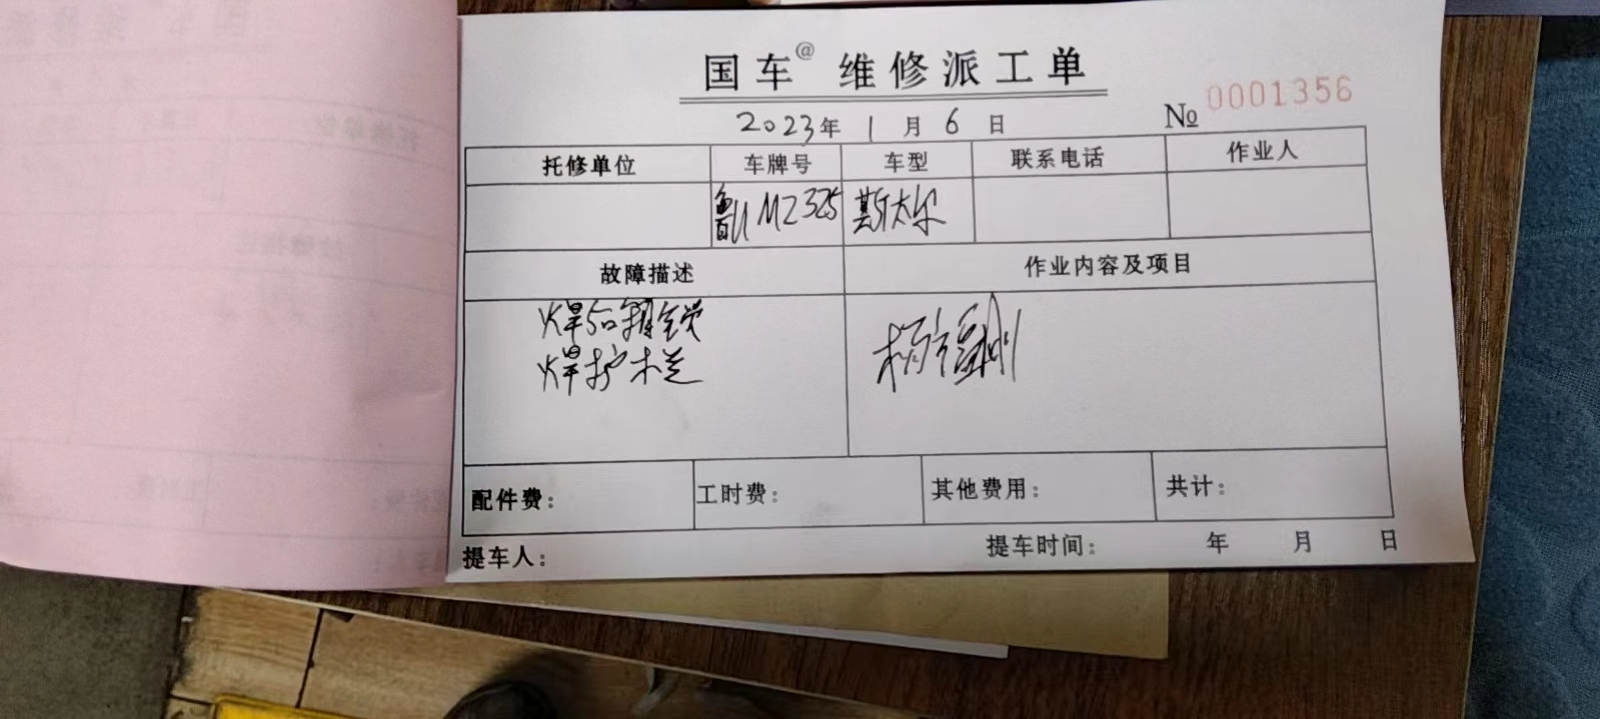 国车@ 维修派工单
№ 0001356
2023年 1月 6日
托修单位 车牌号 车型 联系电话 作业人
MZ325 斯太尔
故障描述 作业内容及项目
焊后
焊护
配件费: 工时费: 其他费用: 共计:
提车人: 提车时间: 年 月 日